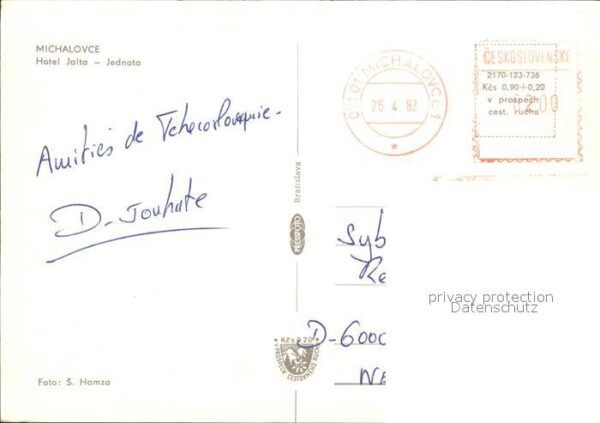 MICHALOVCE
Hotel Jalta – Jednota
Amitiés de Tchécoslovaquie.
D. Jouhate
Foto: Š. Hamza
Bratislava
PRESSFOTO
071 01 MICHALOVCE 1
26. 4. 82
ČESKOSLOVENSKO
2170-123-736
Kčs 0,90+0,20
v prospech
cest. ruchu
200
Syb
Re
D-6000
privacy protection
Datenschutz
Kčs 0,20
V PROSPECH CESTOVNÉHO RUCHU